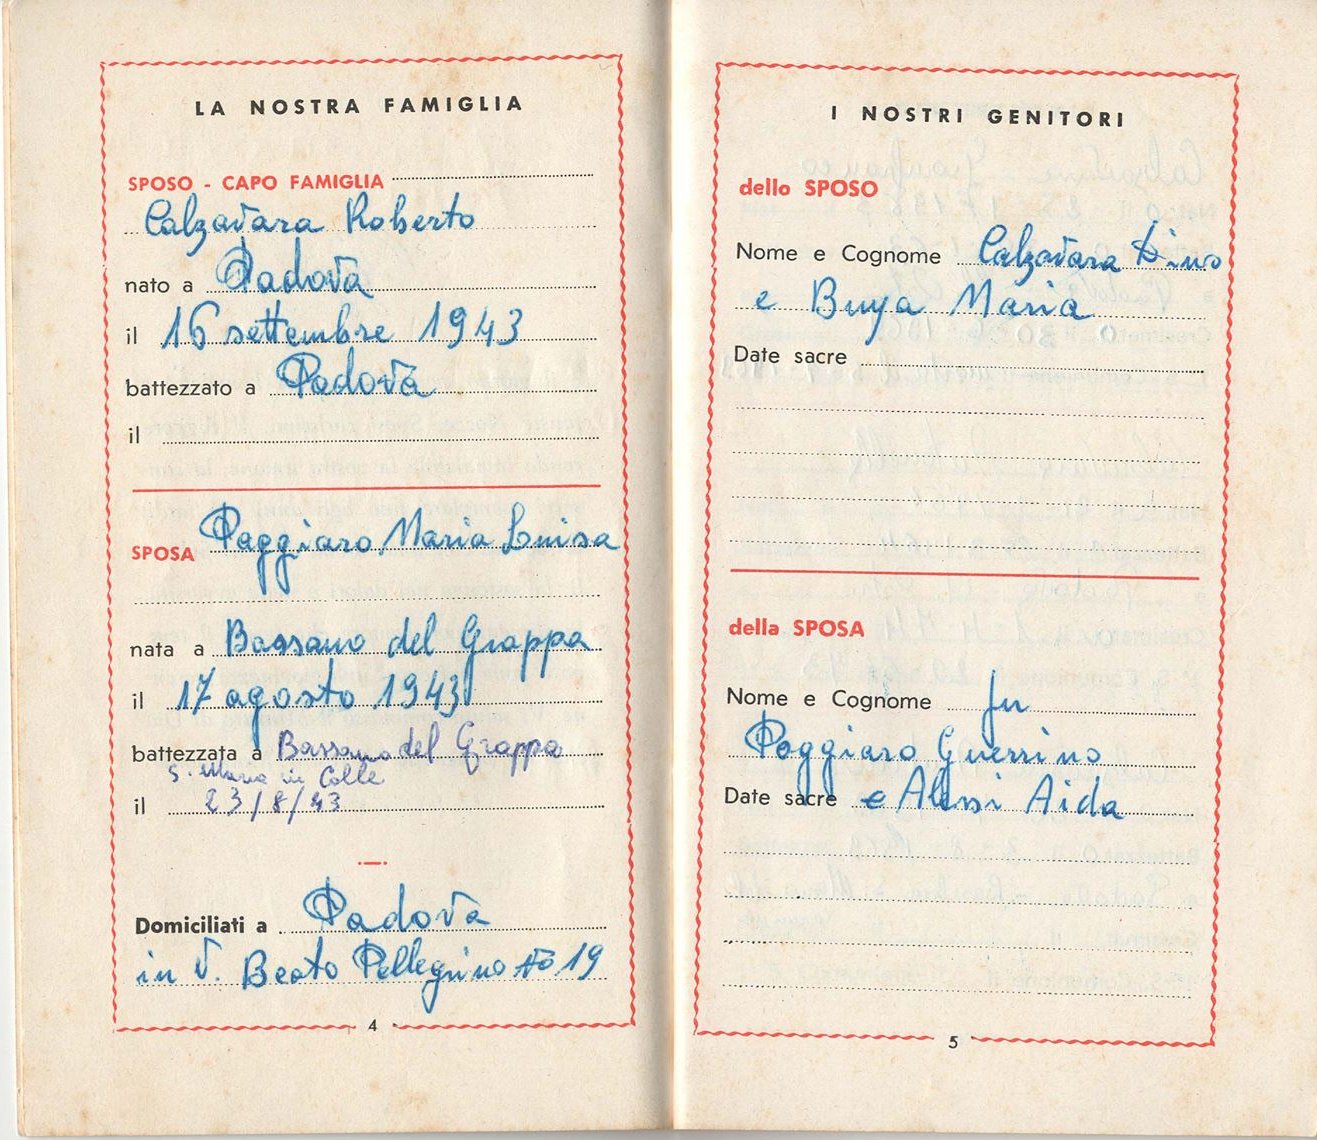 LA NOSTRA FAMIGLIA
SPOSO - CAPO FAMIGLIA
Calzavara Roberto
nato a Padova
il 16 settembre 1943
battezzato a Padova
il
SPOSA Paggiaro Maria Luisa
nata a Bassano del Grappa
il 17 agosto 1943
battezzata a Bassano del Grappa
S. Maria in Colle
il 23/8/43
Domiciliati a Padova
in V. Beato Pellegrino No 19
4
I NOSTRI GENITORI
dello SPOSO
Nome e Cognome Calzavara Dino
e Buya Maria
Date sacre
della SPOSA
Nome e Cognome fu
Paggiaro Guerrino
Date sacre e Alessi Aida
5